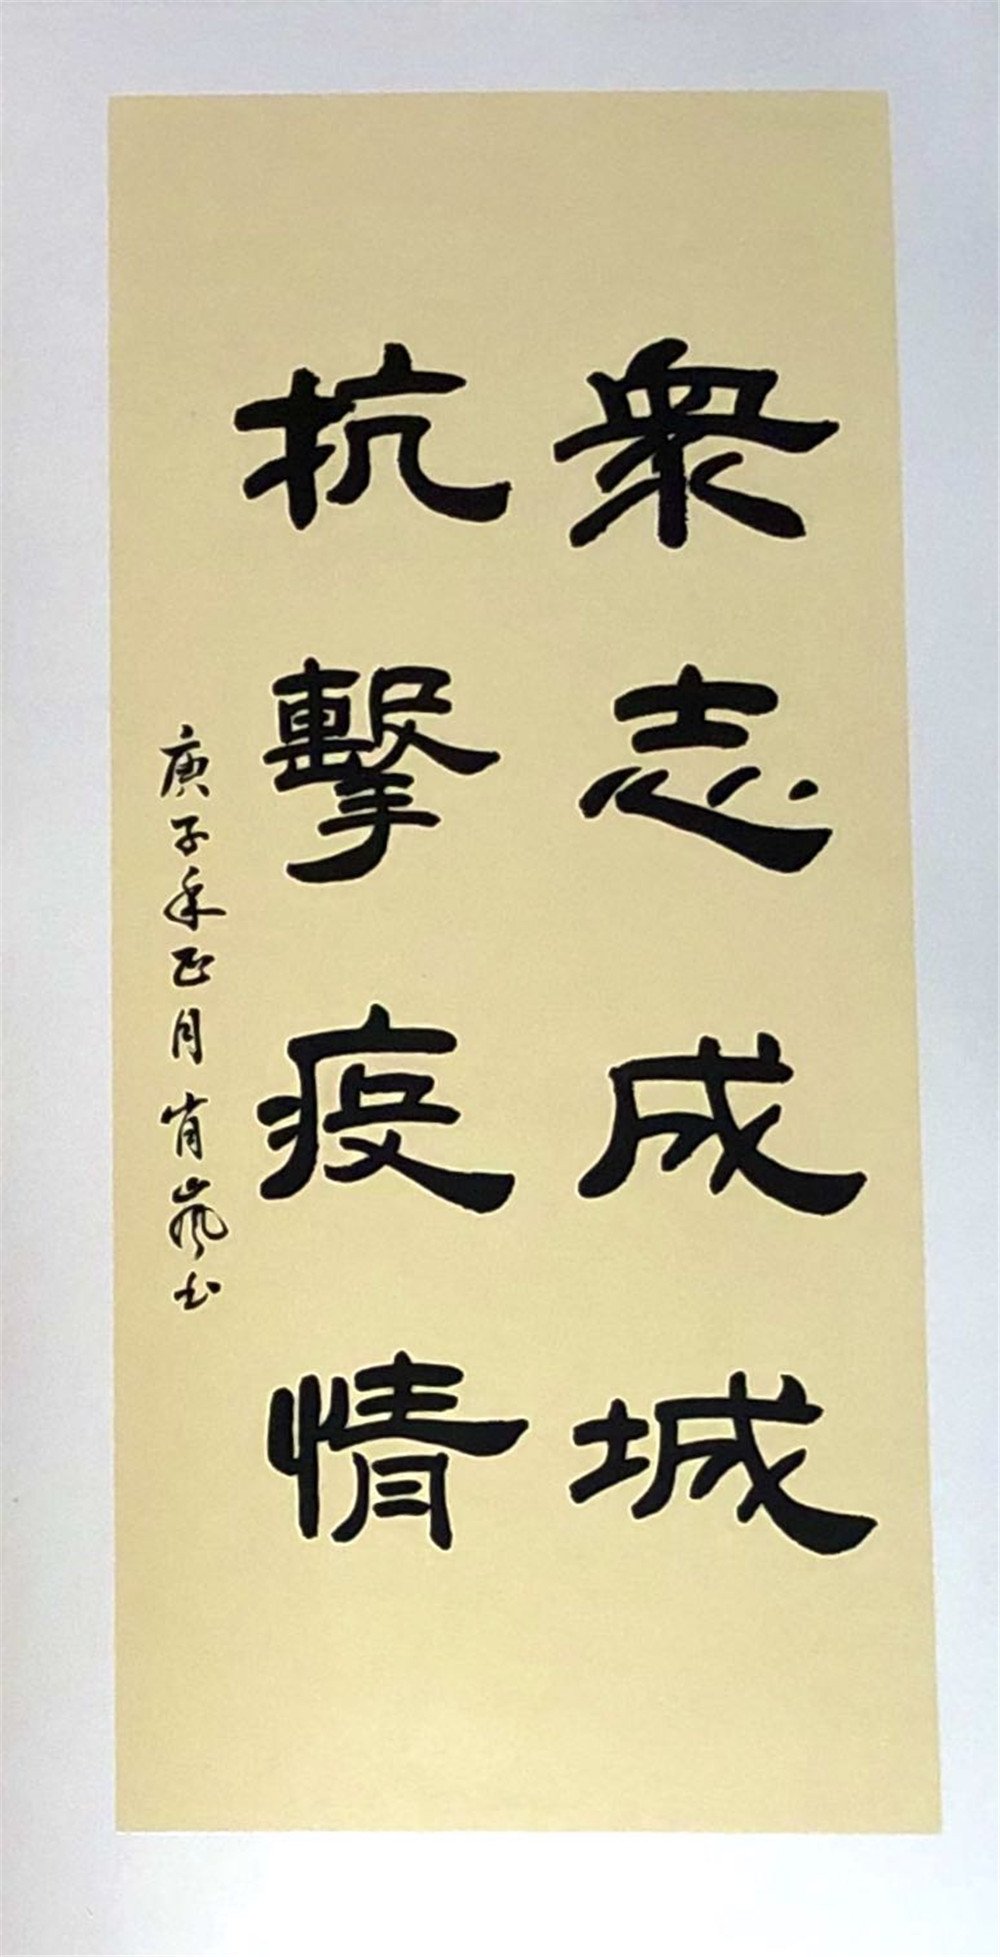 衆志成城
抗擊疫情
庚子年正月肖嵐书